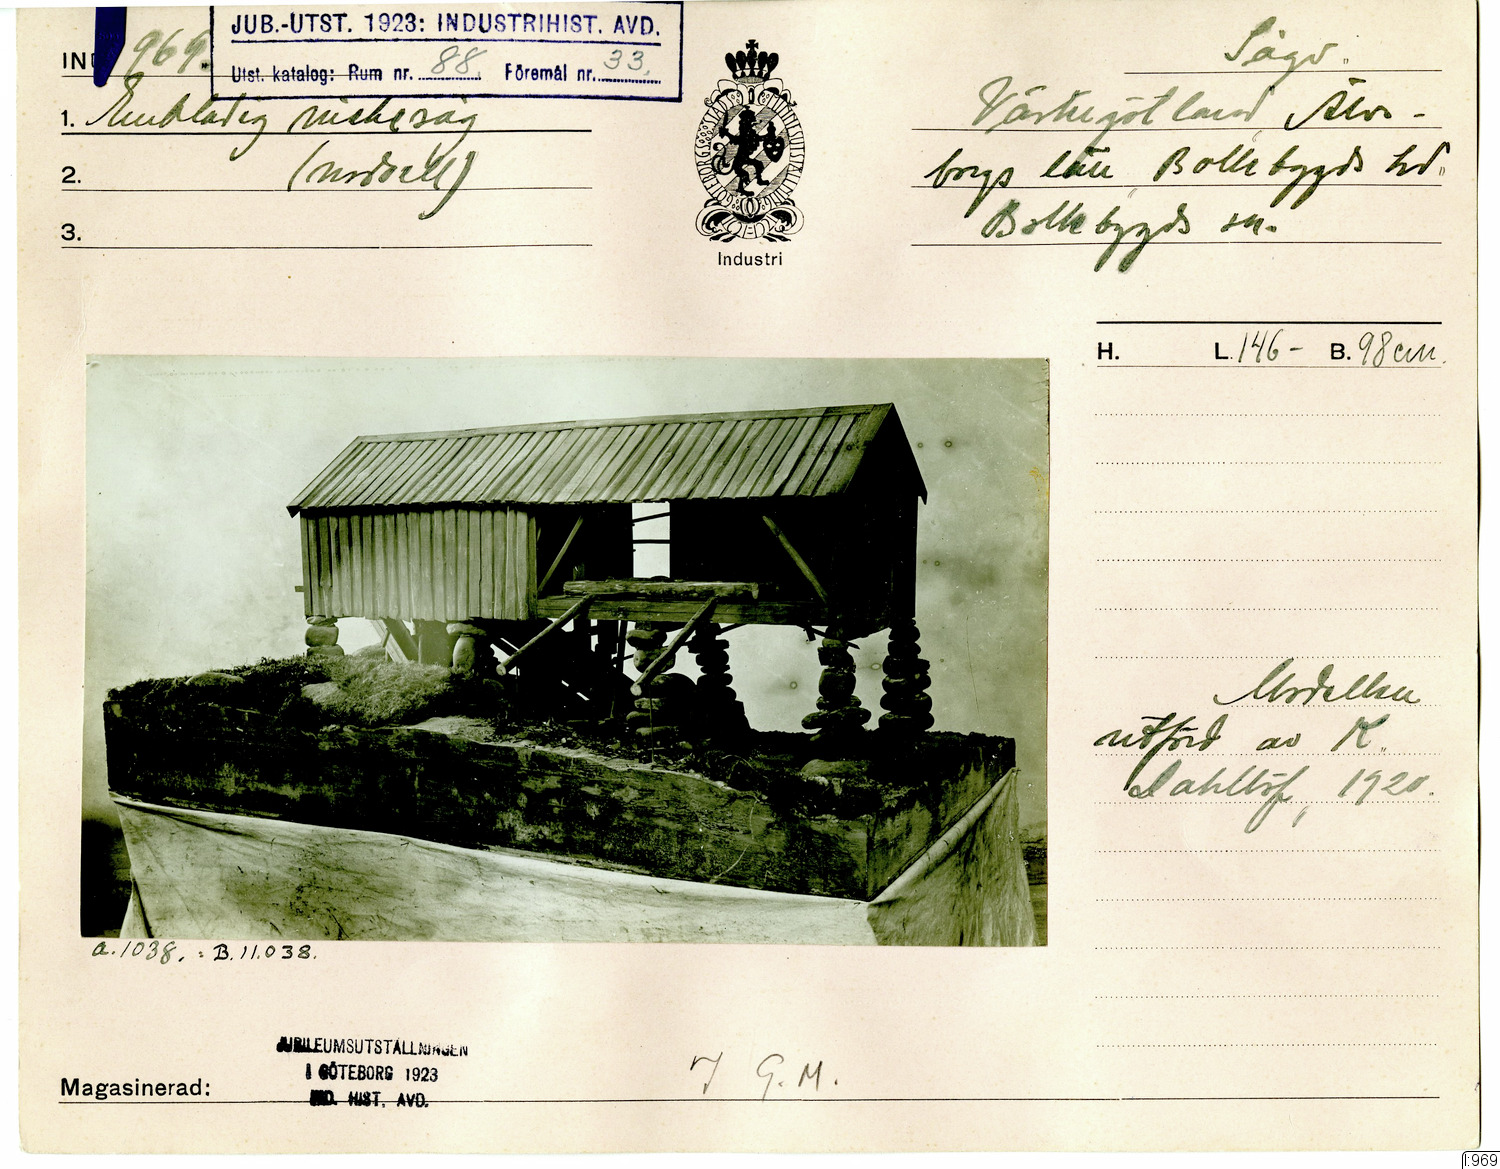 JUB.-UTST. 1923: INDUSTRIHIST. AVD.
Utst. katalog: Rum nr. 88. Föremål nr. 33.
IN 969.
1. Enbladig
2. (modell)
3.
GÖTEBORGS STADS
1921
Industri
Sågv.
Västergötland Älvs-
borgs län, Bollebygds hd.
Bollebygds sn.
H. L. 146- B. 98 cm.
Modellen
utförd av K.
Dahllöf, 1920.
a. 1038. : B. 11.038.
JUBILEUMSUTSTÄLLNINGEN
I GÖTEBORG 1923
IND. HIST. AVD.
Magasinerad:
G.M.
I:969